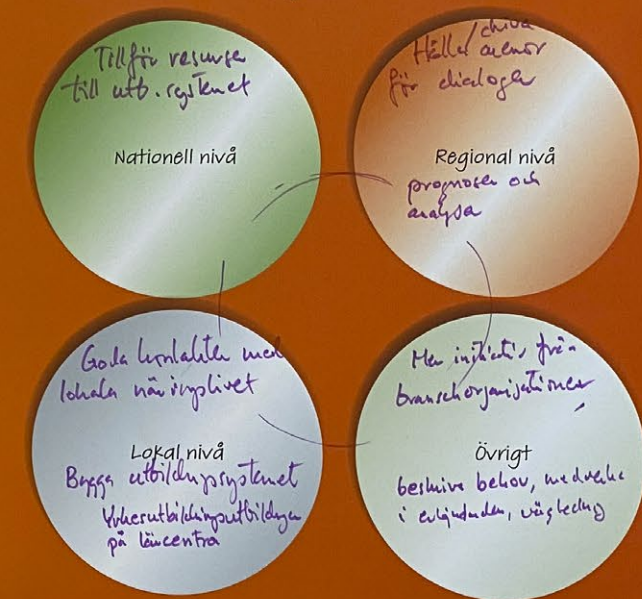 Tillför resurser
till utb. systemet
Nationell nivå
Håller/driva arenor
för dialoger
Regional nivå
prognoser och
analyser
Goda kontakter med
lokala näringslivet
Lokal nivå
Bygga utbildningssystemet
Yrkesutbildningsutbildningen
på lärcentra
Mer initiativ från
branschorganisationer
Övrigt
beskriva behov, medverka
i erbjudanden, vägledning